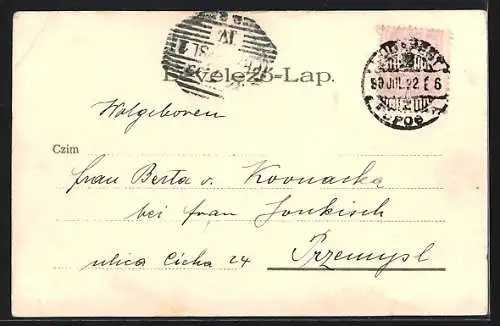 Levelező-Lap.
Wolgeboren
Czim
frau Berta v. Kovnacka
bei frau Jonkisch
ulica Cicha 24
Przemysl